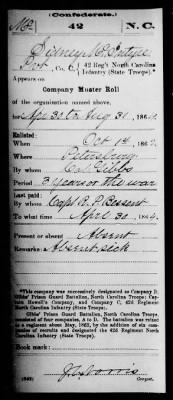 (Confederate.)
Mc 42 N.C.
Sidney McIntyre
Pvt, Co. C, 42 Reg't North Carolina
Infantry (State Troops).*
Appears on
Company Muster Roll
of the organization named above,
for Apr 30 to Aug 31, 1864.
Enlisted:
When Oct 14, 1862.
Where Petersburg
By whom Col. Gibbs
Period 3 years or the war
Last paid:
By whom Capt R. P. Bessent
To what time April 30, 1864.
Present or absent Absent
Remarks: Absent sick
*This company was successively designated as Company D,
Gibbs' Prison Guard Battalion, North Carolina Troops; Cap-
tain Howell's Company, and Company C, 42d Regiment
North Carolina Infantry (State Troops).
Gibbs' Prison Guard Battalion, North Carolina Troops,
consisted of four companies, A to D. The battalion was raised
to a regiment about May, 1862, by the addition of six com-
panies of recruits and designated the 42d Regiment North
Carolina Infantry (State Troops).
Book mark:
(642)
Copyist.